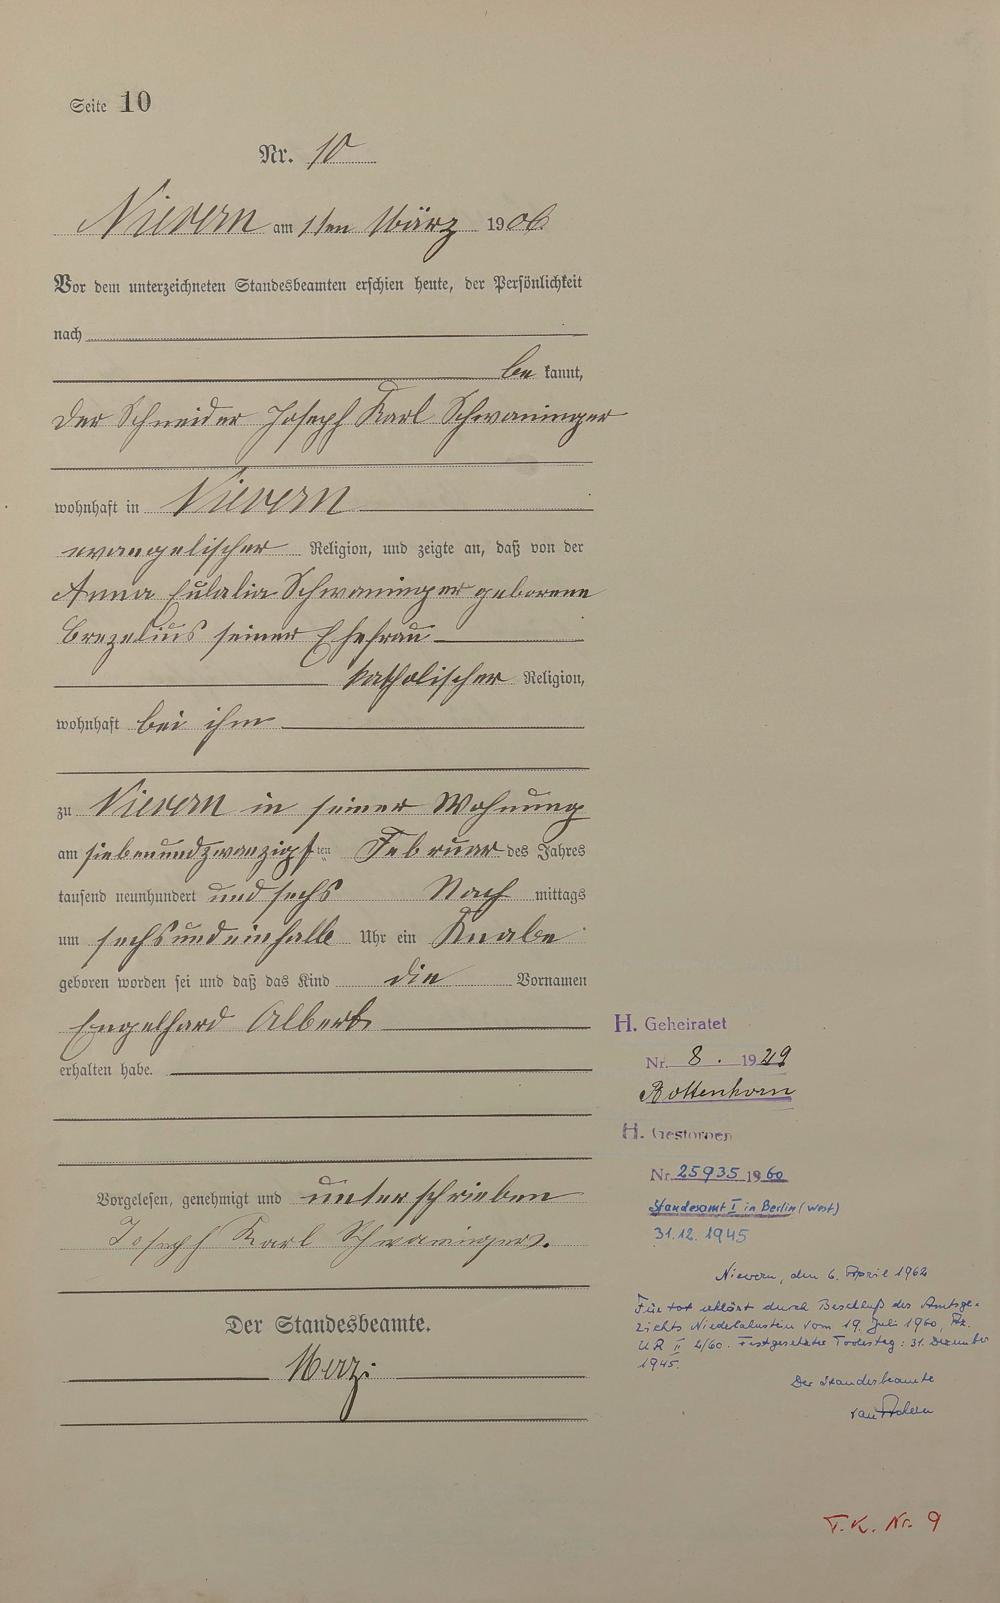 Seite 10
Nr. 10
Nievern am 1ten März 1906
Vor dem unterzeichneten Standesbeamten erschien heute, der Persönlichkeit
nach
be kannt,
der Schneider Joseph Karl Schwaninger
wohnhaft in Nievern
evangelischer Religion, und zeigte an, daß von der
Anna Eulalia Schwaninger geborene
Brezelius seiner Ehefrau
katholischer Religion,
wohnhaft bei ihm
zu Nievern in seiner Wohnung
am siebenundzwanzigsten Februar des Jahres
tausend neunhundert und sechs Nach mittags
um sechsundeinhalb Uhr ein Knabe
geboren worden sei und daß das Kind die Vornamen
Engelhard Albert
erhalten habe.
Vorgelesen, genehmigt und unterschrieben
Joseph Karl Schwaninger.
Der Standesbeamte.
Merz
H. Geheiratet
Nr. 8. 1929
H. Gestorben
Nr. 25935 1960
Standesamt I in Berlin (West)
31.12.1945
Nievern, den 6. April 1962
Für tot erklärt durch Beschluß des Amtsge-
richts Niederlahnstein vom 19. Juli 1960, Az.
UR II 4/60. Festgesetzter Todestag: 31. Dezember
1945.
Der Standesbeamte
T.K. Nr. 9